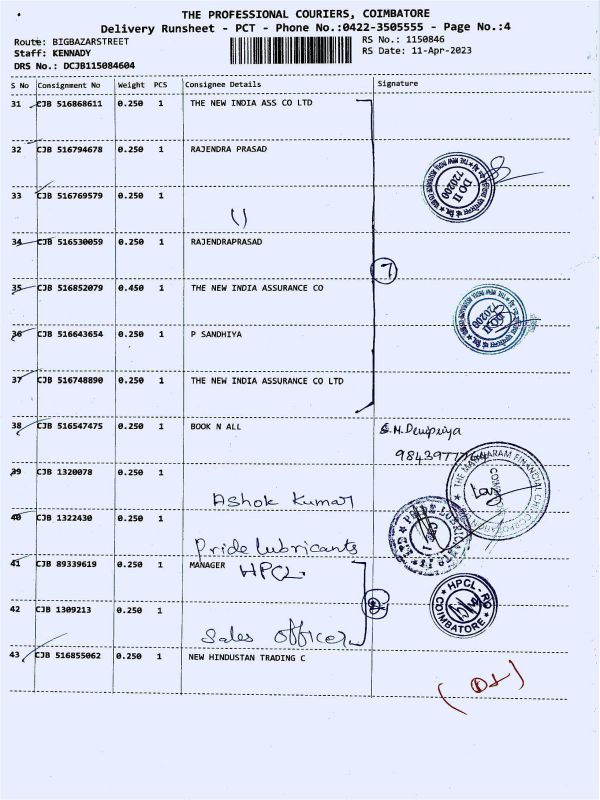 THE PROFESSIONAL COURIERS, COIMBATORE
Delivery Runsheet - PCT - Phone No.:0422-3505555 - Page No.:4
Route: BIGBAZARSTREET
RS No.: 1150846
Staff: KENNADY
RS Date: 11-Apr-2023
DRS No.: DCJB115084604
S No Consignment No Weight PCS Consignee Details Signature
31 CJB 516868611 0.250 1 THE NEW INDIA ASS CO LTD
32 CJB 516794678 0.250 1 RAJENDRA PRASAD
DO II
720200
33 CJB 516769579 0.250 1
34 CJB 516530059 0.250 1 RAJENDRAPRASAD
7
35 CJB 516852079 0.450 1 THE NEW INDIA ASSURANCE CO
DO II
720200
36 CJB 516643654 0.250 1 P SANDHIYA
37 CJB 516748890 0.250 1 THE NEW INDIA ASSURANCE CO LTD
38 CJB 516547475 0.250 1 BOOK N ALL
39 CJB 1320078 0.250 1
Ashok Kumar
40 CJB 1322430 0.250 1
Pride Lubricants
41 CJB 89339619 0.250 1 MANAGER HPCL
HPCL-RO
COIMBATORE
42 CJB 1309213 0.250 1
Sales Officer
43 CJB 516855062 0.250 1 NEW HINDUSTAN TRADING C